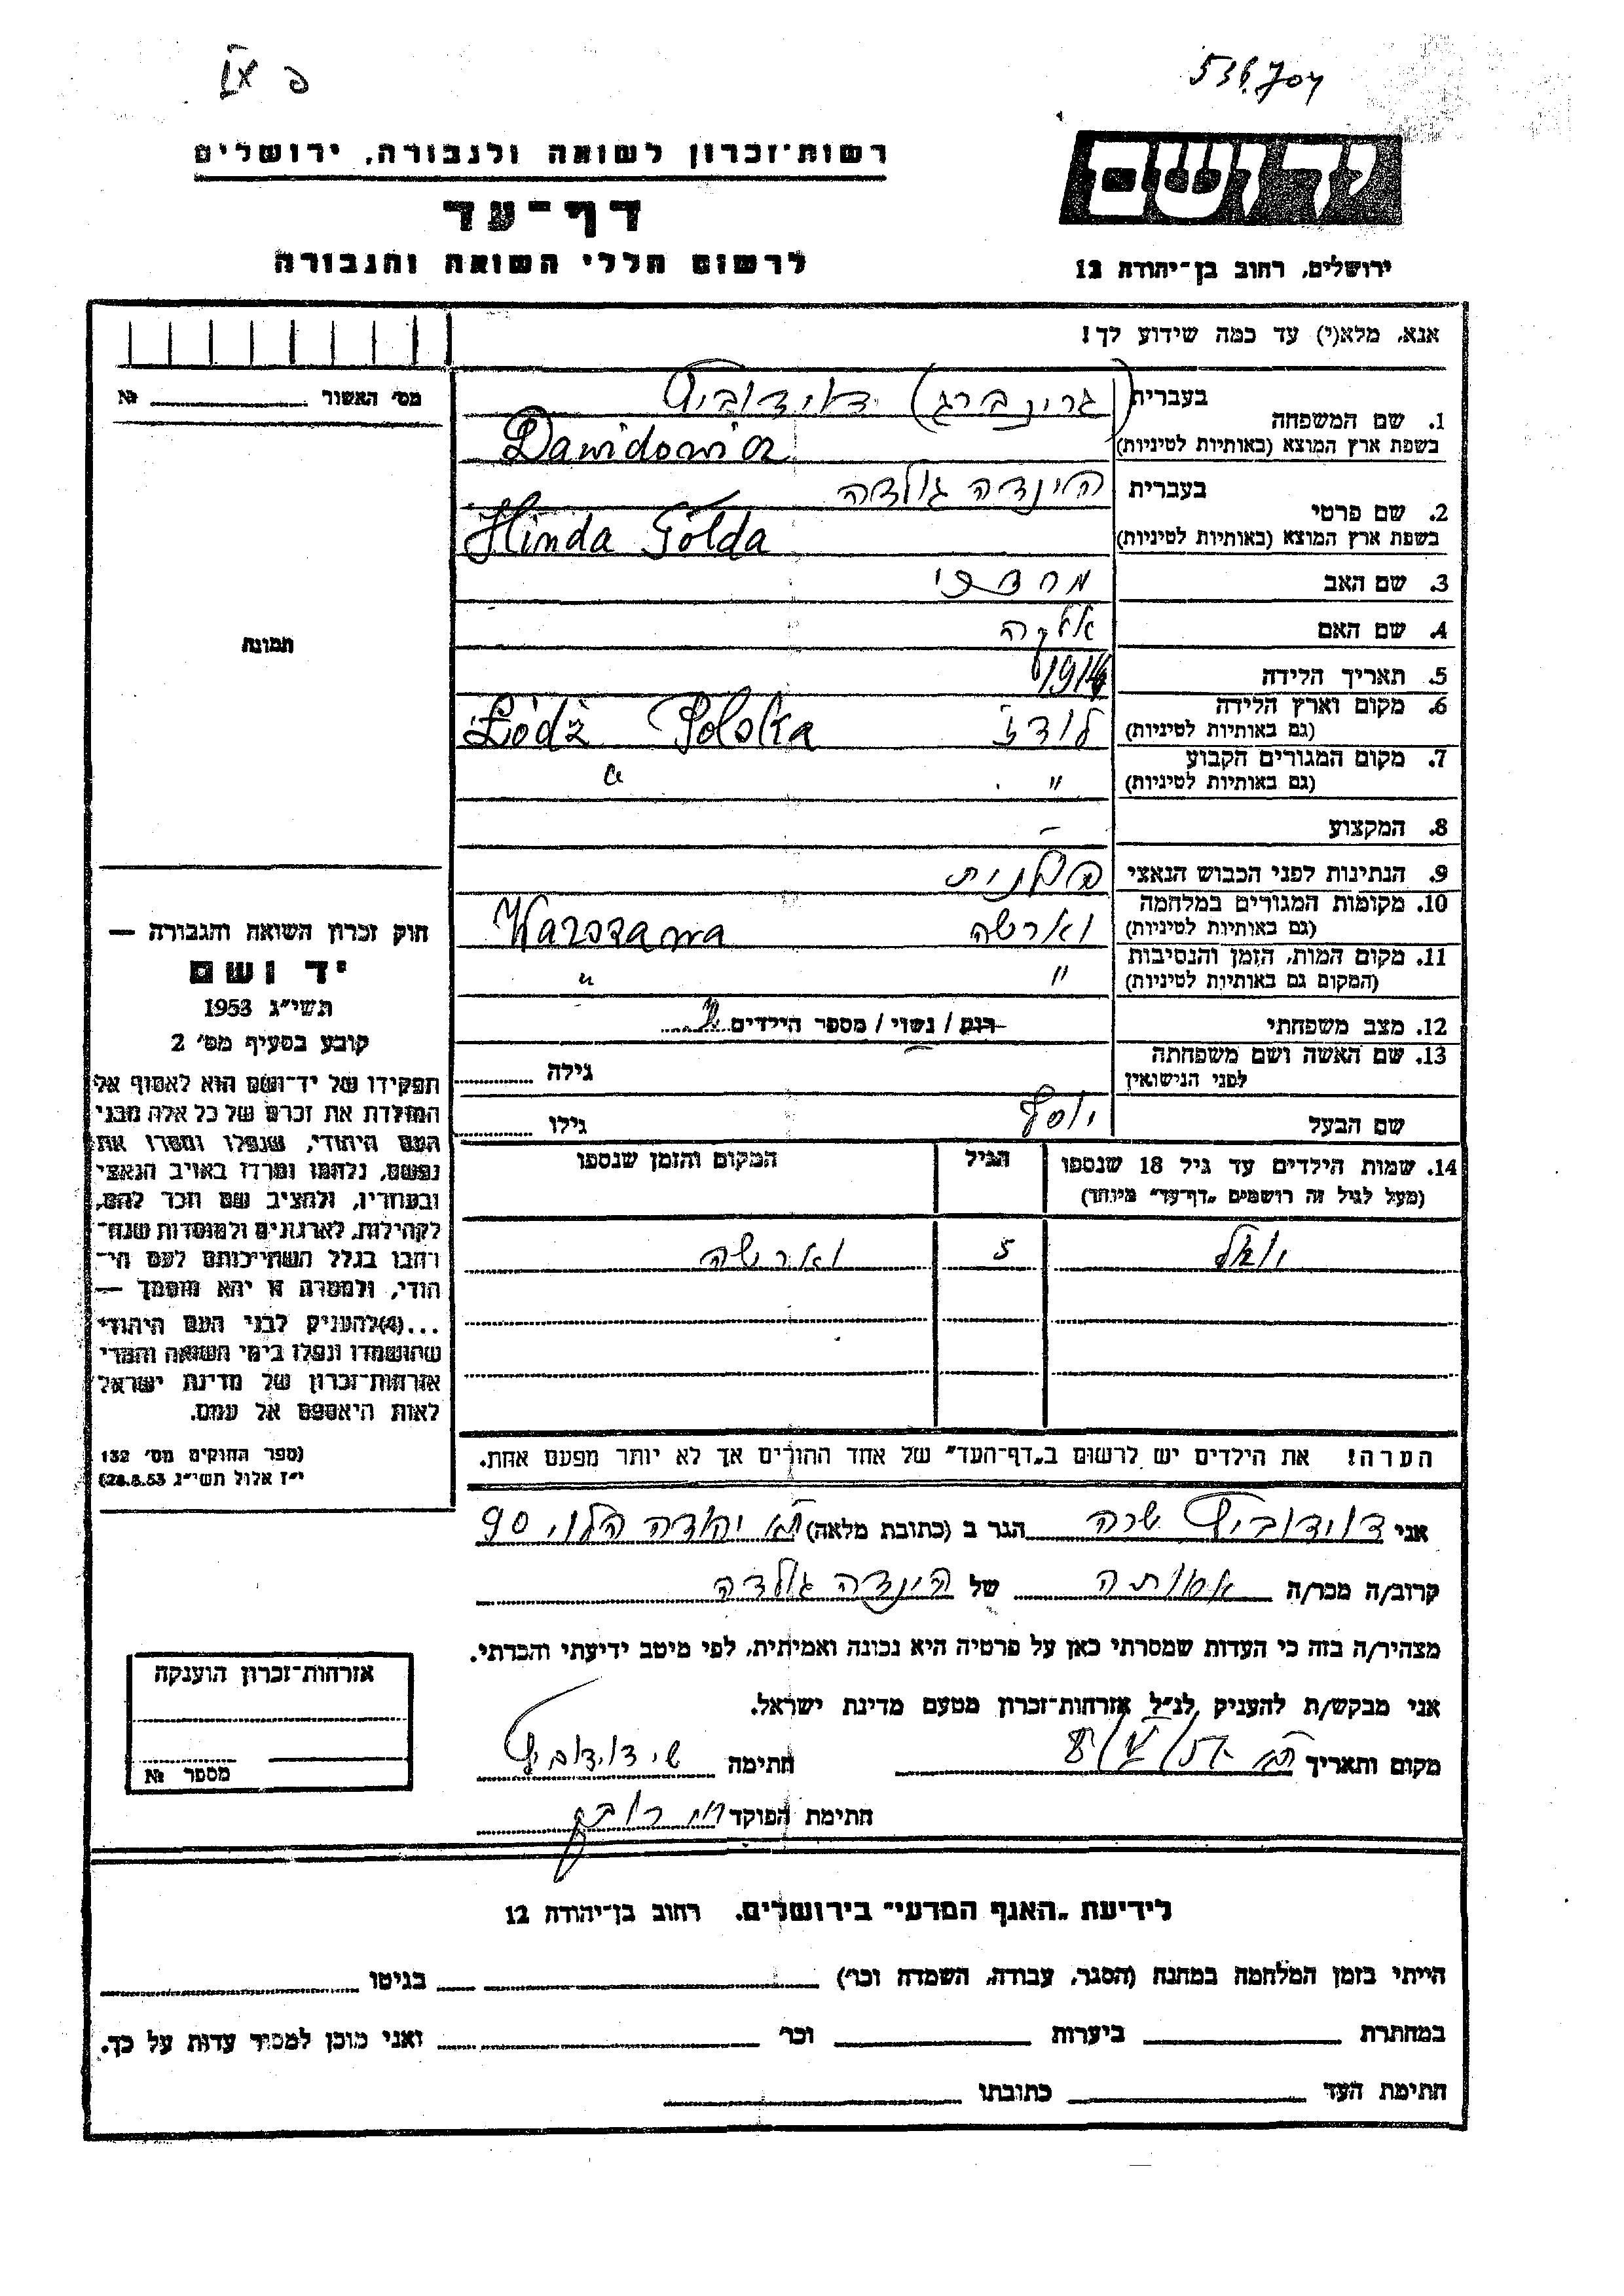 536.704
פ IX
יד ושם
ירושלים, רחוב בן־יהודה 12
רשות־זכרון לשואה ולגבורה, ירושלים
דף־עד
לרשום חללי השואה והגבורה
אנא, מלא(י) עד כמה שידוע לך!
מס׳ האשור № 
1. שם המשפחה
בעברית (גרינברג) דאידוביץ
בשפת ארץ המוצא (באותיות לטיניות) Dawidowicz
2. שם פרטי
בעברית הינדה גולדה
בשפת ארץ המוצא (באותיות לטיניות) Hinda Golda
3. שם האב מרדכי
4. שם האם
5. תאריך הלידה 1914
6. מקום וארץ הלידה (גם באותיות לטיניות) לודז Łódź Polska
7. מקום המגורים הקבוע (גם באותיות לטיניות) " "
8. המקצוע —
9. הנתינות לפני הכבוש הנאצי פולנית
10. מקומות המגורים במלחמה (גם באותיות לטיניות) ווארשה Warszawa
11. מקום המות, הזמן והנסיבות (המקום גם באותיות לטיניות) " "
12. מצב משפחתי רווק / נשוי / מספר הילדים
13. שם האשה ושם משפחתה לפני הנישואין גילה
שם הבעל יוסף גילו
14. שמות הילדים עד גיל 18 שנספו (מעל לגיל זה רושמים „דף־עד" מיוחד)
הגיל
המקום והזמן שנספו
5 ווארשה
הערה! את הילדים יש לרשום ב„דף־העד" של אחד ההורים אך לא יותר מפעם אחת.
תמונה
חוק זכרון השואה והגבורה —
יד ושם
תשי״ג 1953
קובע בסעיף מס׳ 2
תפקידו של יד־ושם הוא לאסוף אל
המולדת את זכרם של כל אלה מבני
העם היהודי, שנפלו ומסרו את
נפשם, נלחמו ומרדו באויב הנאצי
ובעוזריו, ולהציב שם וזכר להם,
לקהילות, לארגונים ולמוסדות שנח־
רבו בגלל השתייכותם לעם הי־
הודי, ולמטרה זו יהא מוסמך —
...(4)להעניק לבני העם היהודי
שהושמדו ונפלו בימי השואה והמרי
אזרחות־זכרון של מדינת ישראל
לאות היאספם אל עמם.
(ספר החוקים מס׳ 132
י״ז אלול תשי״ג 28.8.53)
אני דוידוביץ שרה הגר ב (כתובת מלאה) ת״א יהודה הלוי 90
קרוב/ה מכר/ה אחותה של הינדה גולדה
מצהיר/ה בזה כי העדות שמסרתי כאן על פרטיה היא נכונה ואמיתית, לפי מיטב ידיעתי והכרתי.
אני מבקש/ת להעניק לנ״ל אזרחות־זכרון מטעם מדינת ישראל.
מקום ותאריך ת״א חתימה ש׳ דוידוביץ
חתימת הפוקד
אזרחות־זכרון הוענקה
מספר №
לידיעת „האגף המדעי" בירושלים. רחוב בן־יהודה 12
הייתי בזמן המלחמה במחנה (הסגר, עבודה, השמדה וכו׳) בגיטו
במחתרת ביערות וכו׳ ואני מוכן למסיר עדות על כך.
חתימת העד כתובתו